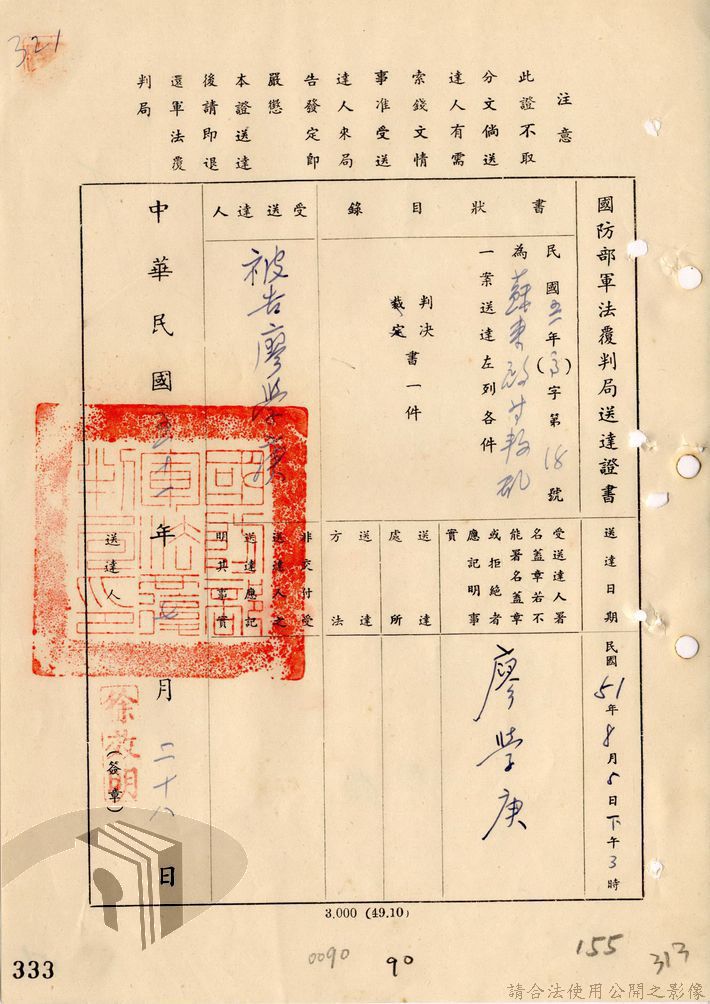 321
注意
此證不取
分文倘送
達人有需
索錢文情
事准受送
達人來局
告發定即
嚴懲
本證送達
後請即退
還軍法覆
判局
國防部軍法覆判局送達證書
送達日期
民國51年8月5日下午3時
書狀目錄
民國五一年( )字第18號
為蘇東啟等叛亂
一案送達左列各件
判決
裁定
書一件
受送達人署
名蓋章若不
能署名蓋章
或拒絕者
應記明事
實
廖學庚
送達處所
送達方法
受送達人
被告廖學庚
非交付受
送達人之
送達應記
明其事實
中華民國五十一年七月二十八日
國防部軍法覆判局印
送達人
(簽章)
3,000 (49.10)
333
0090
90
155
313
請合法使用公開之影像